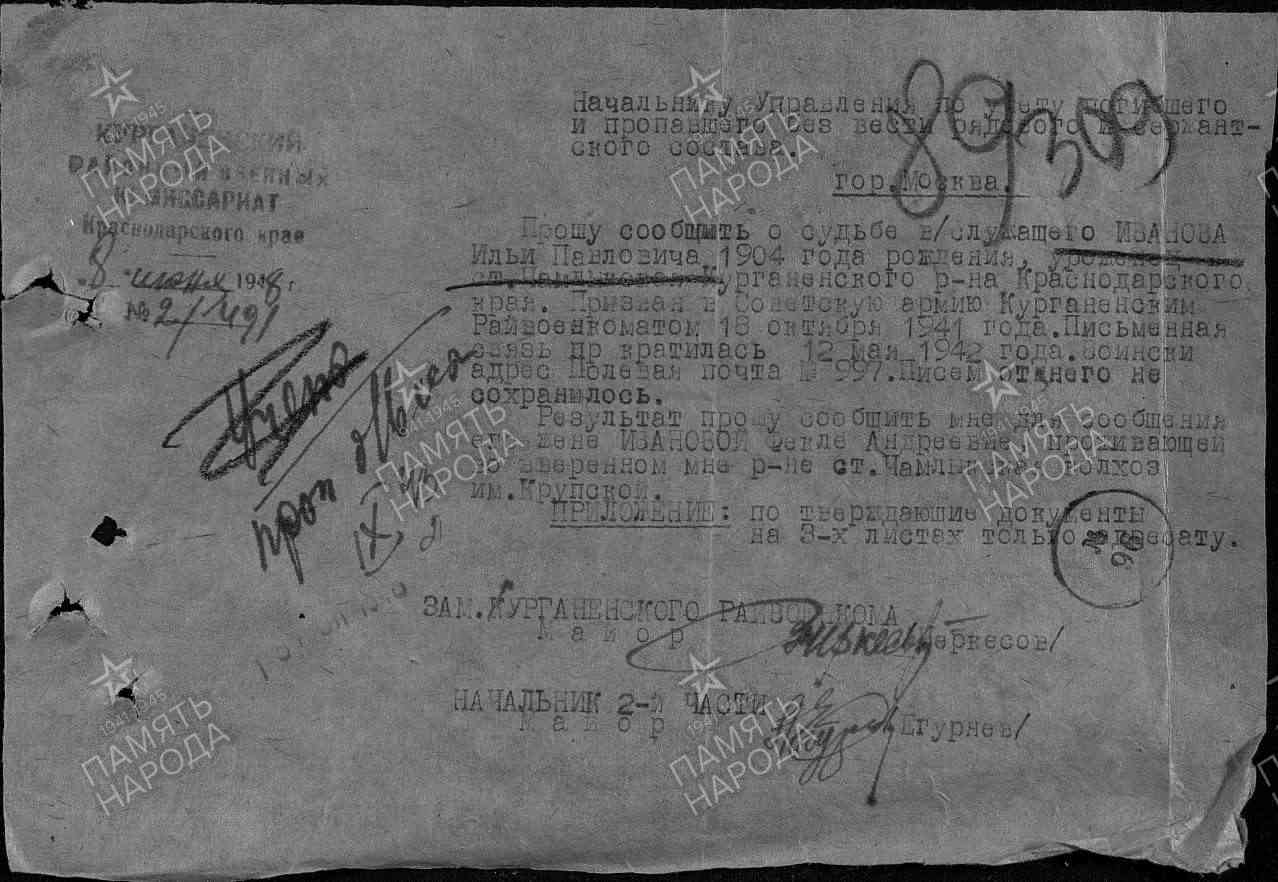 КУРГАНЕНСКИЙ
РАЙОННЫЙ ВОЕННЫЙ
КОМИССАРИАТ
Краснодарского края
"8" июня 1948 г
№ 2/491
89309
Начальнику Управления по учету погибшего
и пропавшего без вести рядового и сержант-
ского состава.
гор.Москва.
Прошу сообщить о судьбе в/служащего ИВАНОВА
Ильи Павловича 1904 года рождения,
ст. Курганенского р-на Краснодарского
края. Призван в Советскую армию Курганенским
Райвоенкоматом 18 октября 1941 года.Письменная
связь пр кратилась 12 мая 1942 года.Воински
адрес Полевая почта № 997.Писем от него не
сохранилось.
Результат прошу сообщить мне для сообщения
его жене ИВАНОВОЙ Фекле Андреевне, проживающей
во вверенном мне р-не ст.Чамлыкская колхоз
им.Крупской.
ПРИЛОЖЕНИЕ: по тверждающие документы
на 3-х листах только адресату.
Учтено
проп
IX
ЗАМ.КУРГАНЕНСКОГО РАЙВОЕНКОМА
Майор /Черкесов/
НАЧАЛЬНИК 2-й ЧАСТИ
Майор /Егурнев/
ПАМЯТЬ
НАРОДА
1941-1945